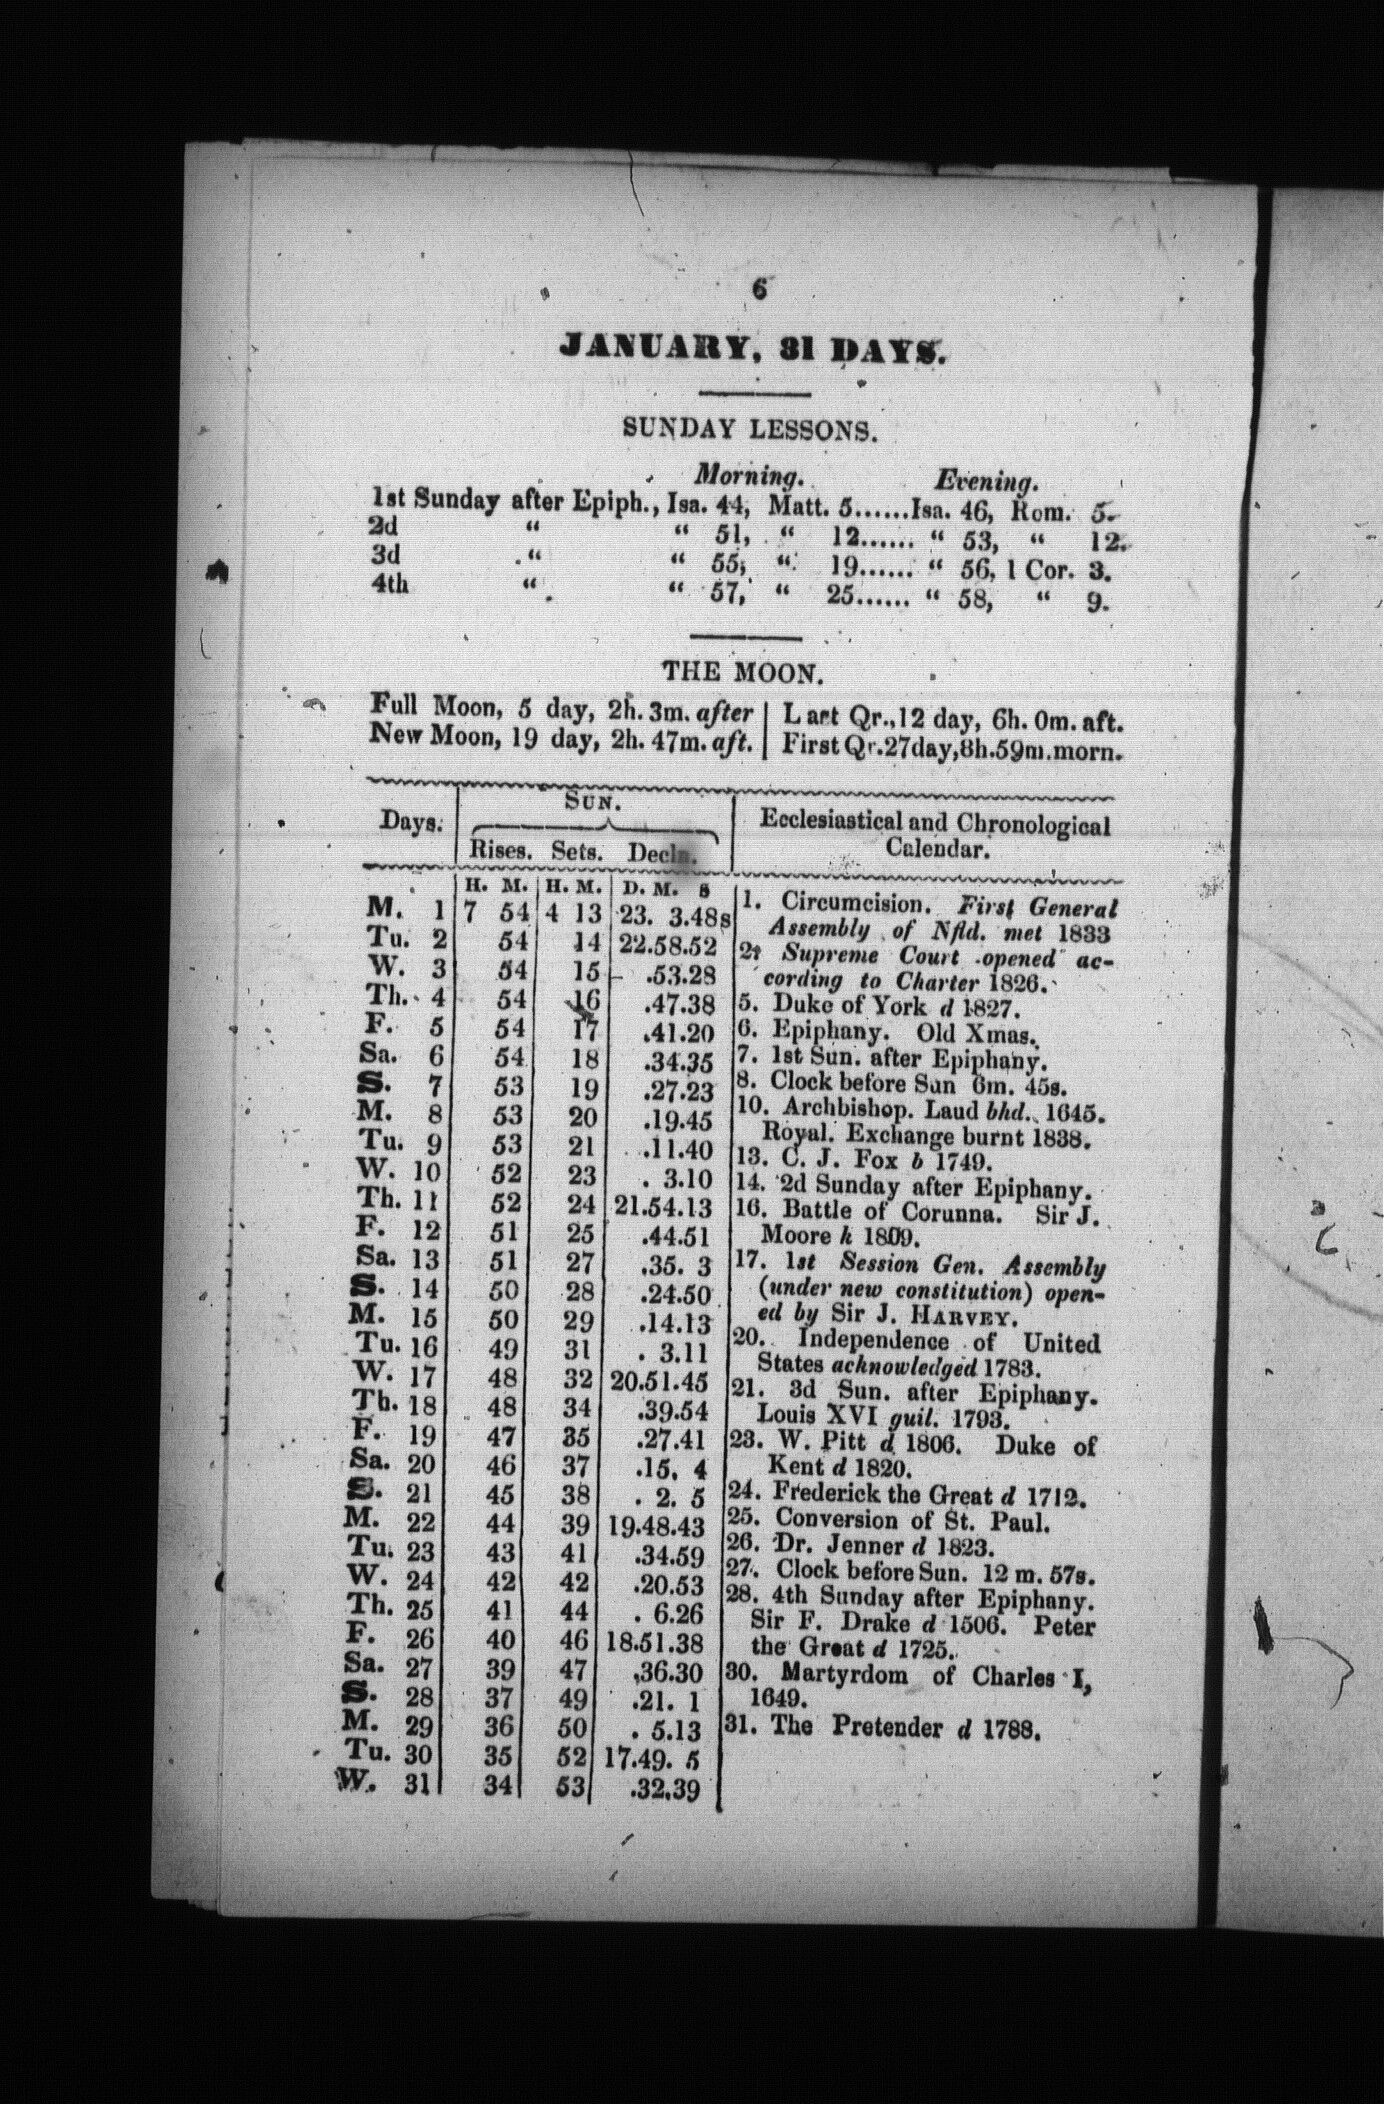 6
JANUARY, 31 DAYS.
SUNDAY LESSONS.
Morning. Evening.
1st Sunday after Epiph., Isa. 44, Matt. 5......Isa. 46, Rom. 5.
2d “ “ 51, “ 12...... “ 53, “ 12.
3d “ “ 55, “ 19...... “ 56, 1 Cor. 3.
4th “ “ 57, “ 25...... “ 58, “ 9.
THE MOON.
Full Moon, 5 day, 2h. 3m. after | Last Qr., 12 day, 6h. 0m. aft.
New Moon, 19 day, 2h. 47m. aft. | First Qr. 27day, 8h. 59m. morn.
Days. SUN. Ecclesiastical and Chronological
Rises. Sets. Decln. Calendar.
H. M. H. M. D. M. s
M. 1 7 54 4 13 23. 3.48s
Tu. 2 54 14 22.58.52
W. 3 54 15 .53.28
Th. 4 54 16 .47.38
F. 5 54 17 .41.20
Sa. 6 54 18 .34.35
S. 7 53 19 .27.23
M. 8 53 20 .19.45
Tu. 9 53 21 .11.40
W. 10 52 23 . 3.10
Th. 11 52 24 21.54.13
F. 12 51 25 .44.51
Sa. 13 51 27 .35. 3
S. 14 50 28 .24.50
M. 15 50 29 .14.13
Tu. 16 49 31 . 3.11
W. 17 48 32 20.51.45
Th. 18 48 34 .39.54
F. 19 47 35 .27.41
Sa. 20 46 37 .15. 4
S. 21 45 38 . 2. 5
M. 22 44 39 19.48.43
Tu. 23 43 41 .34.59
W. 24 42 42 .20.53
Th. 25 41 44 . 6.26
F. 26 40 46 18.51.38
Sa. 27 39 47 .36.30
S. 28 37 49 .21. 1
M. 29 36 50 . 5.13
Tu. 30 35 52 17.49. 5
W. 31 34 53 .32.39
1. Circumcision. First General
Assembly of Nfld. met 1833
2. Supreme Court opened ac-
cording to Charter 1826.
5. Duke of York d 1827.
6. Epiphany. Old Xmas.
7. 1st Sun. after Epiphany.
8. Clock before Sun 6m. 45s.
10. Archbishop. Laud bhd. 1645.
Royal Exchange burnt 1838.
13. C. J. Fox b 1749.
14. 2d Sunday after Epiphany.
16. Battle of Corunna. Sir J.
Moore k 1809.
17. 1st Session Gen. Assembly
(under new constitution) open-
ed by Sir J. HARVEY.
20. Independence of United
States acknowledged 1783.
21. 3d Sun. after Epiphany.
Louis XVI guil. 1793.
23. W. Pitt d 1806. Duke of
Kent d 1820.
24. Frederick the Great d 1712.
25. Conversion of St. Paul.
26. Dr. Jenner d 1823.
27. Clock before Sun. 12 m. 57s.
28. 4th Sunday after Epiphany.
Sir F. Drake d 1506. Peter
the Great d 1725.
30. Martyrdom of Charles I,
1649.
31. The Pretender d 1788.